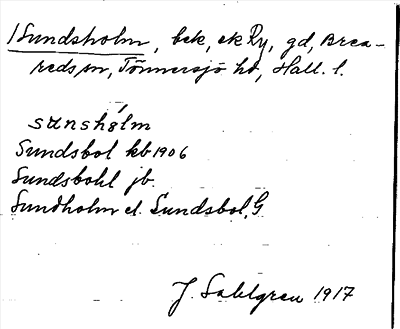 /Sundsholm, bek, ek Ry, gd, Brea-
reds sn, Tönnersjö hd, Hall. l.
sunshólm
Sundsbol kb 1906
Sundsbohl jb.
Sundholm el. Sundsbol, G
J. Sahlgren 1917